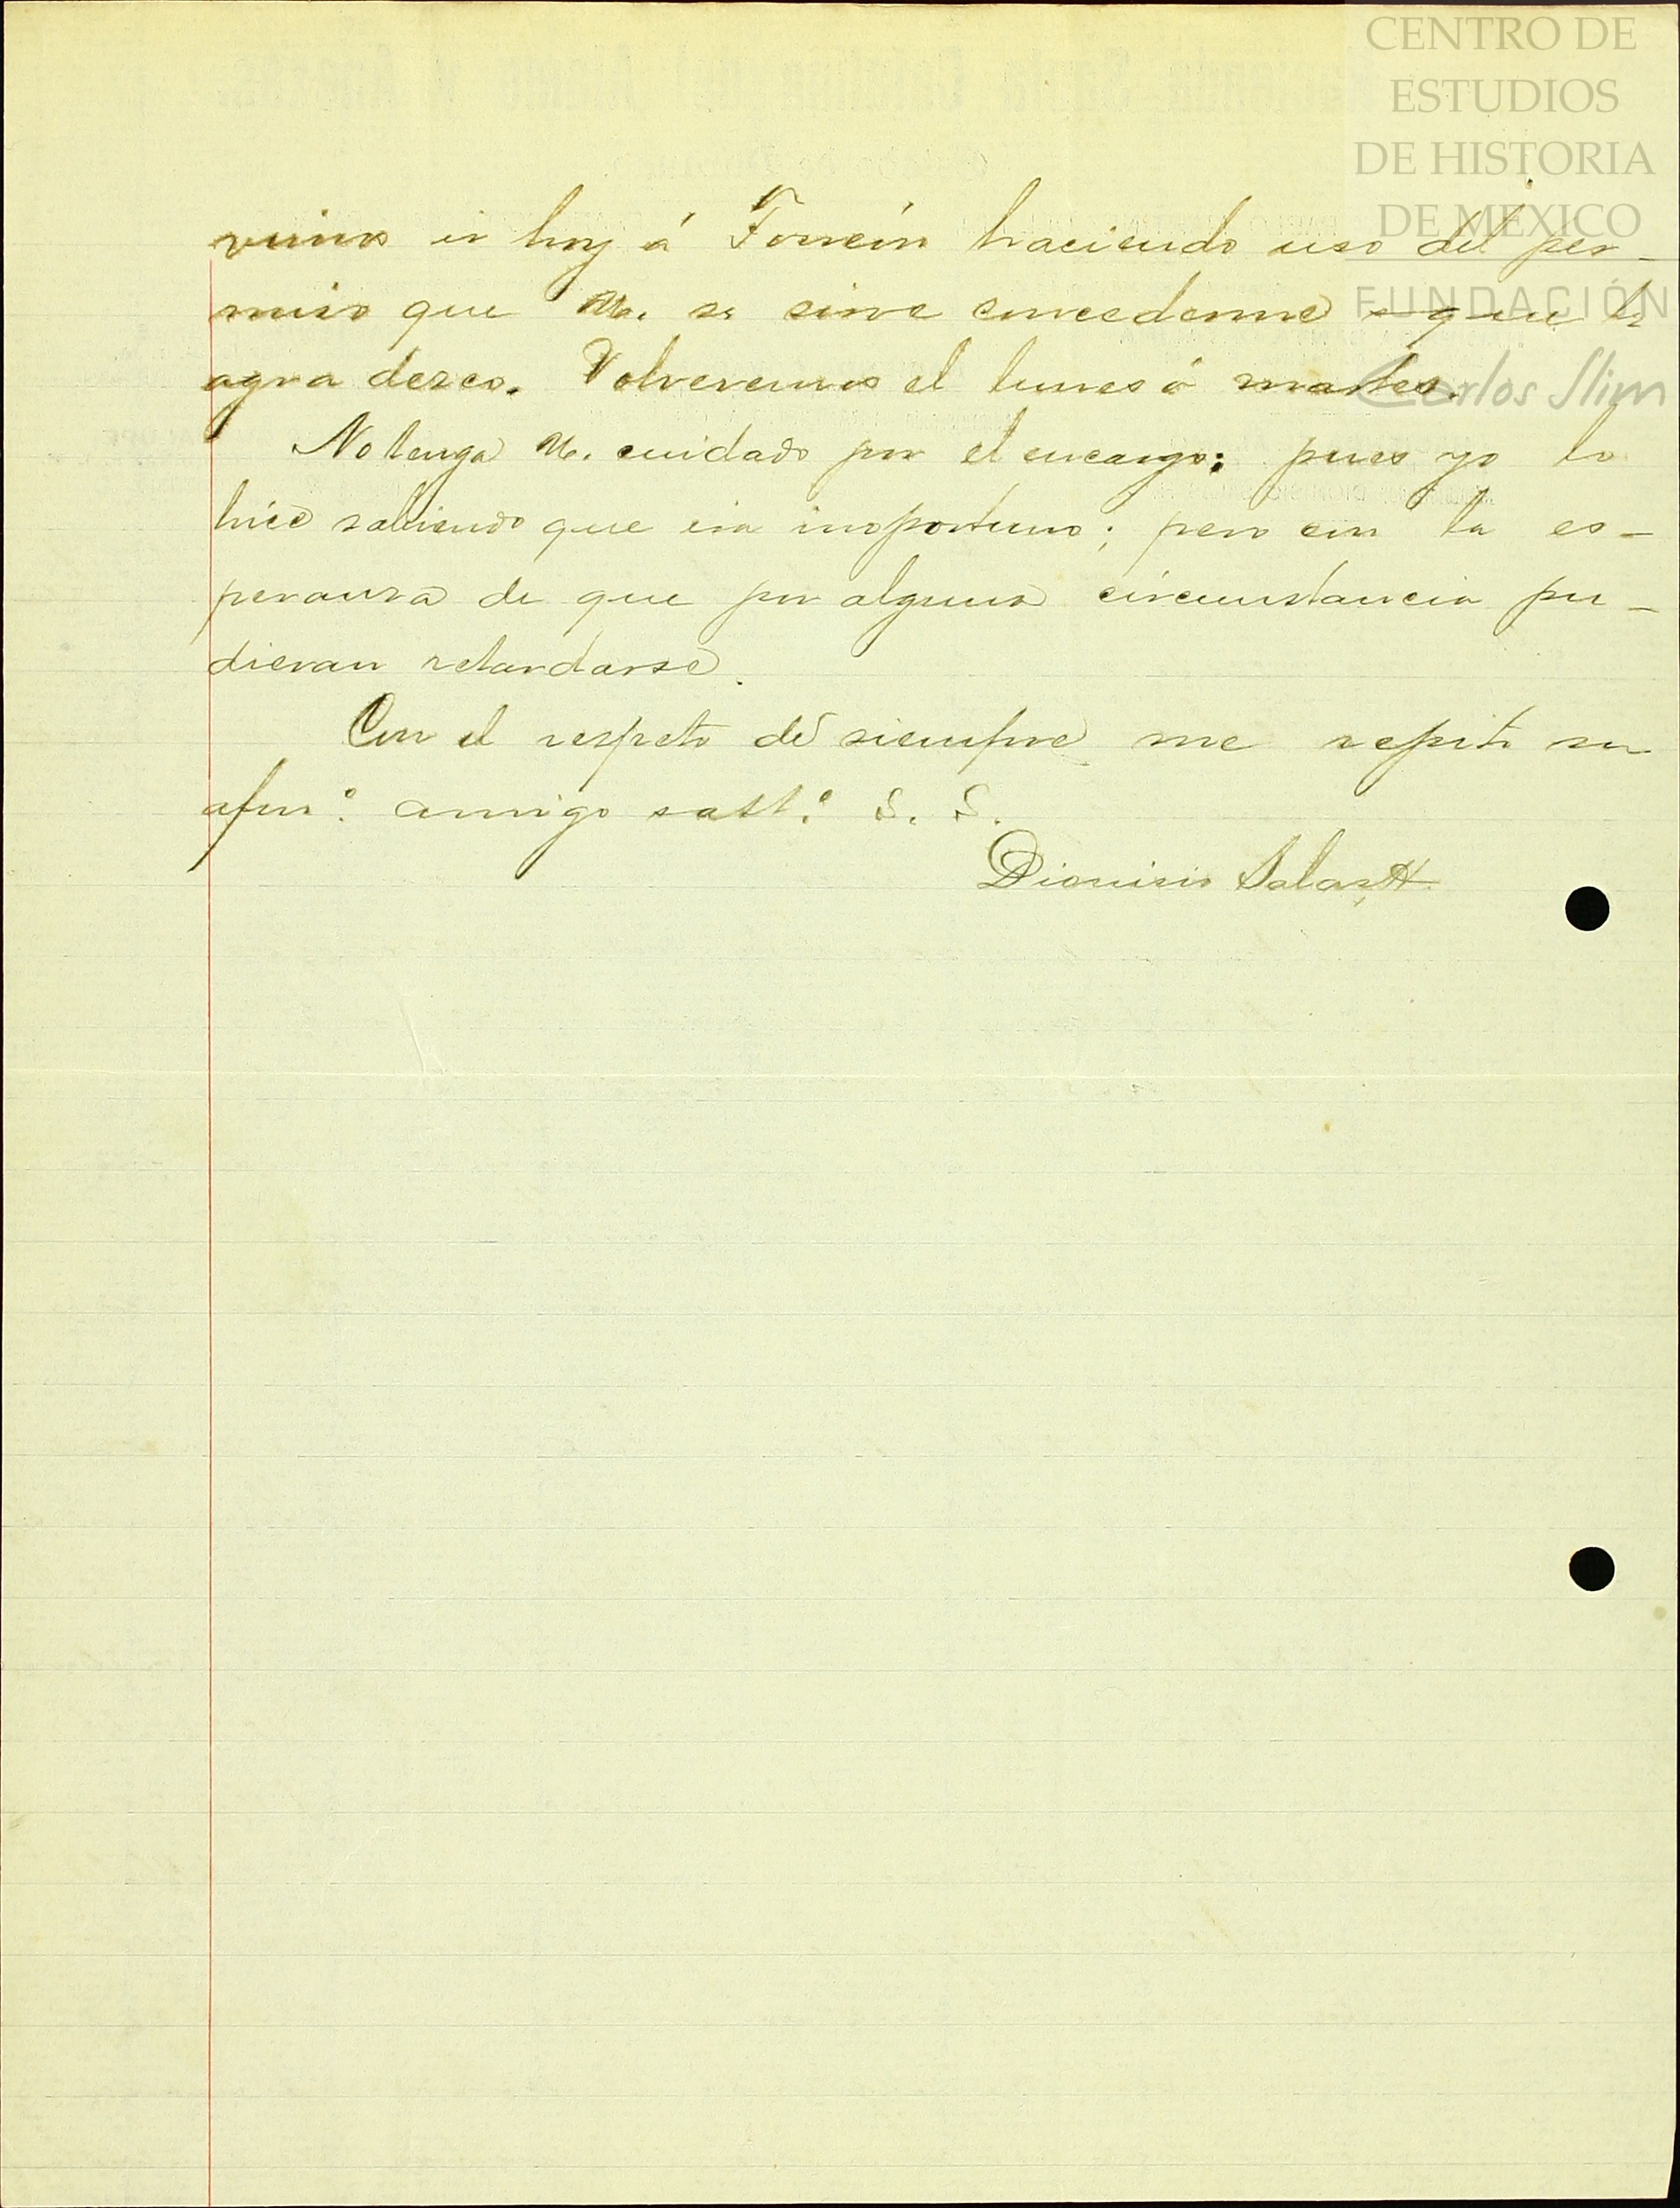 CENTRO DE
ESTUDIOS
DE HISTORIA
DE MÉXICO
FUNDACIÓN
Carlos Slim
ir hoy á Torreón haciendo uso del per-
miso que U. se sirve concederme y que le
agradezco. Volveremos el lunes ó martes.
No tenga U. cuidado por el encargo; pues yo lo
hice sabiendo que era inoportuno; pero con la es-
peranza de que por alguna circunstancia pu-
dieran retardarse.
Con el respeto de siempre me repito su
afmo. amigo S. S.
Dionisio Salas H.